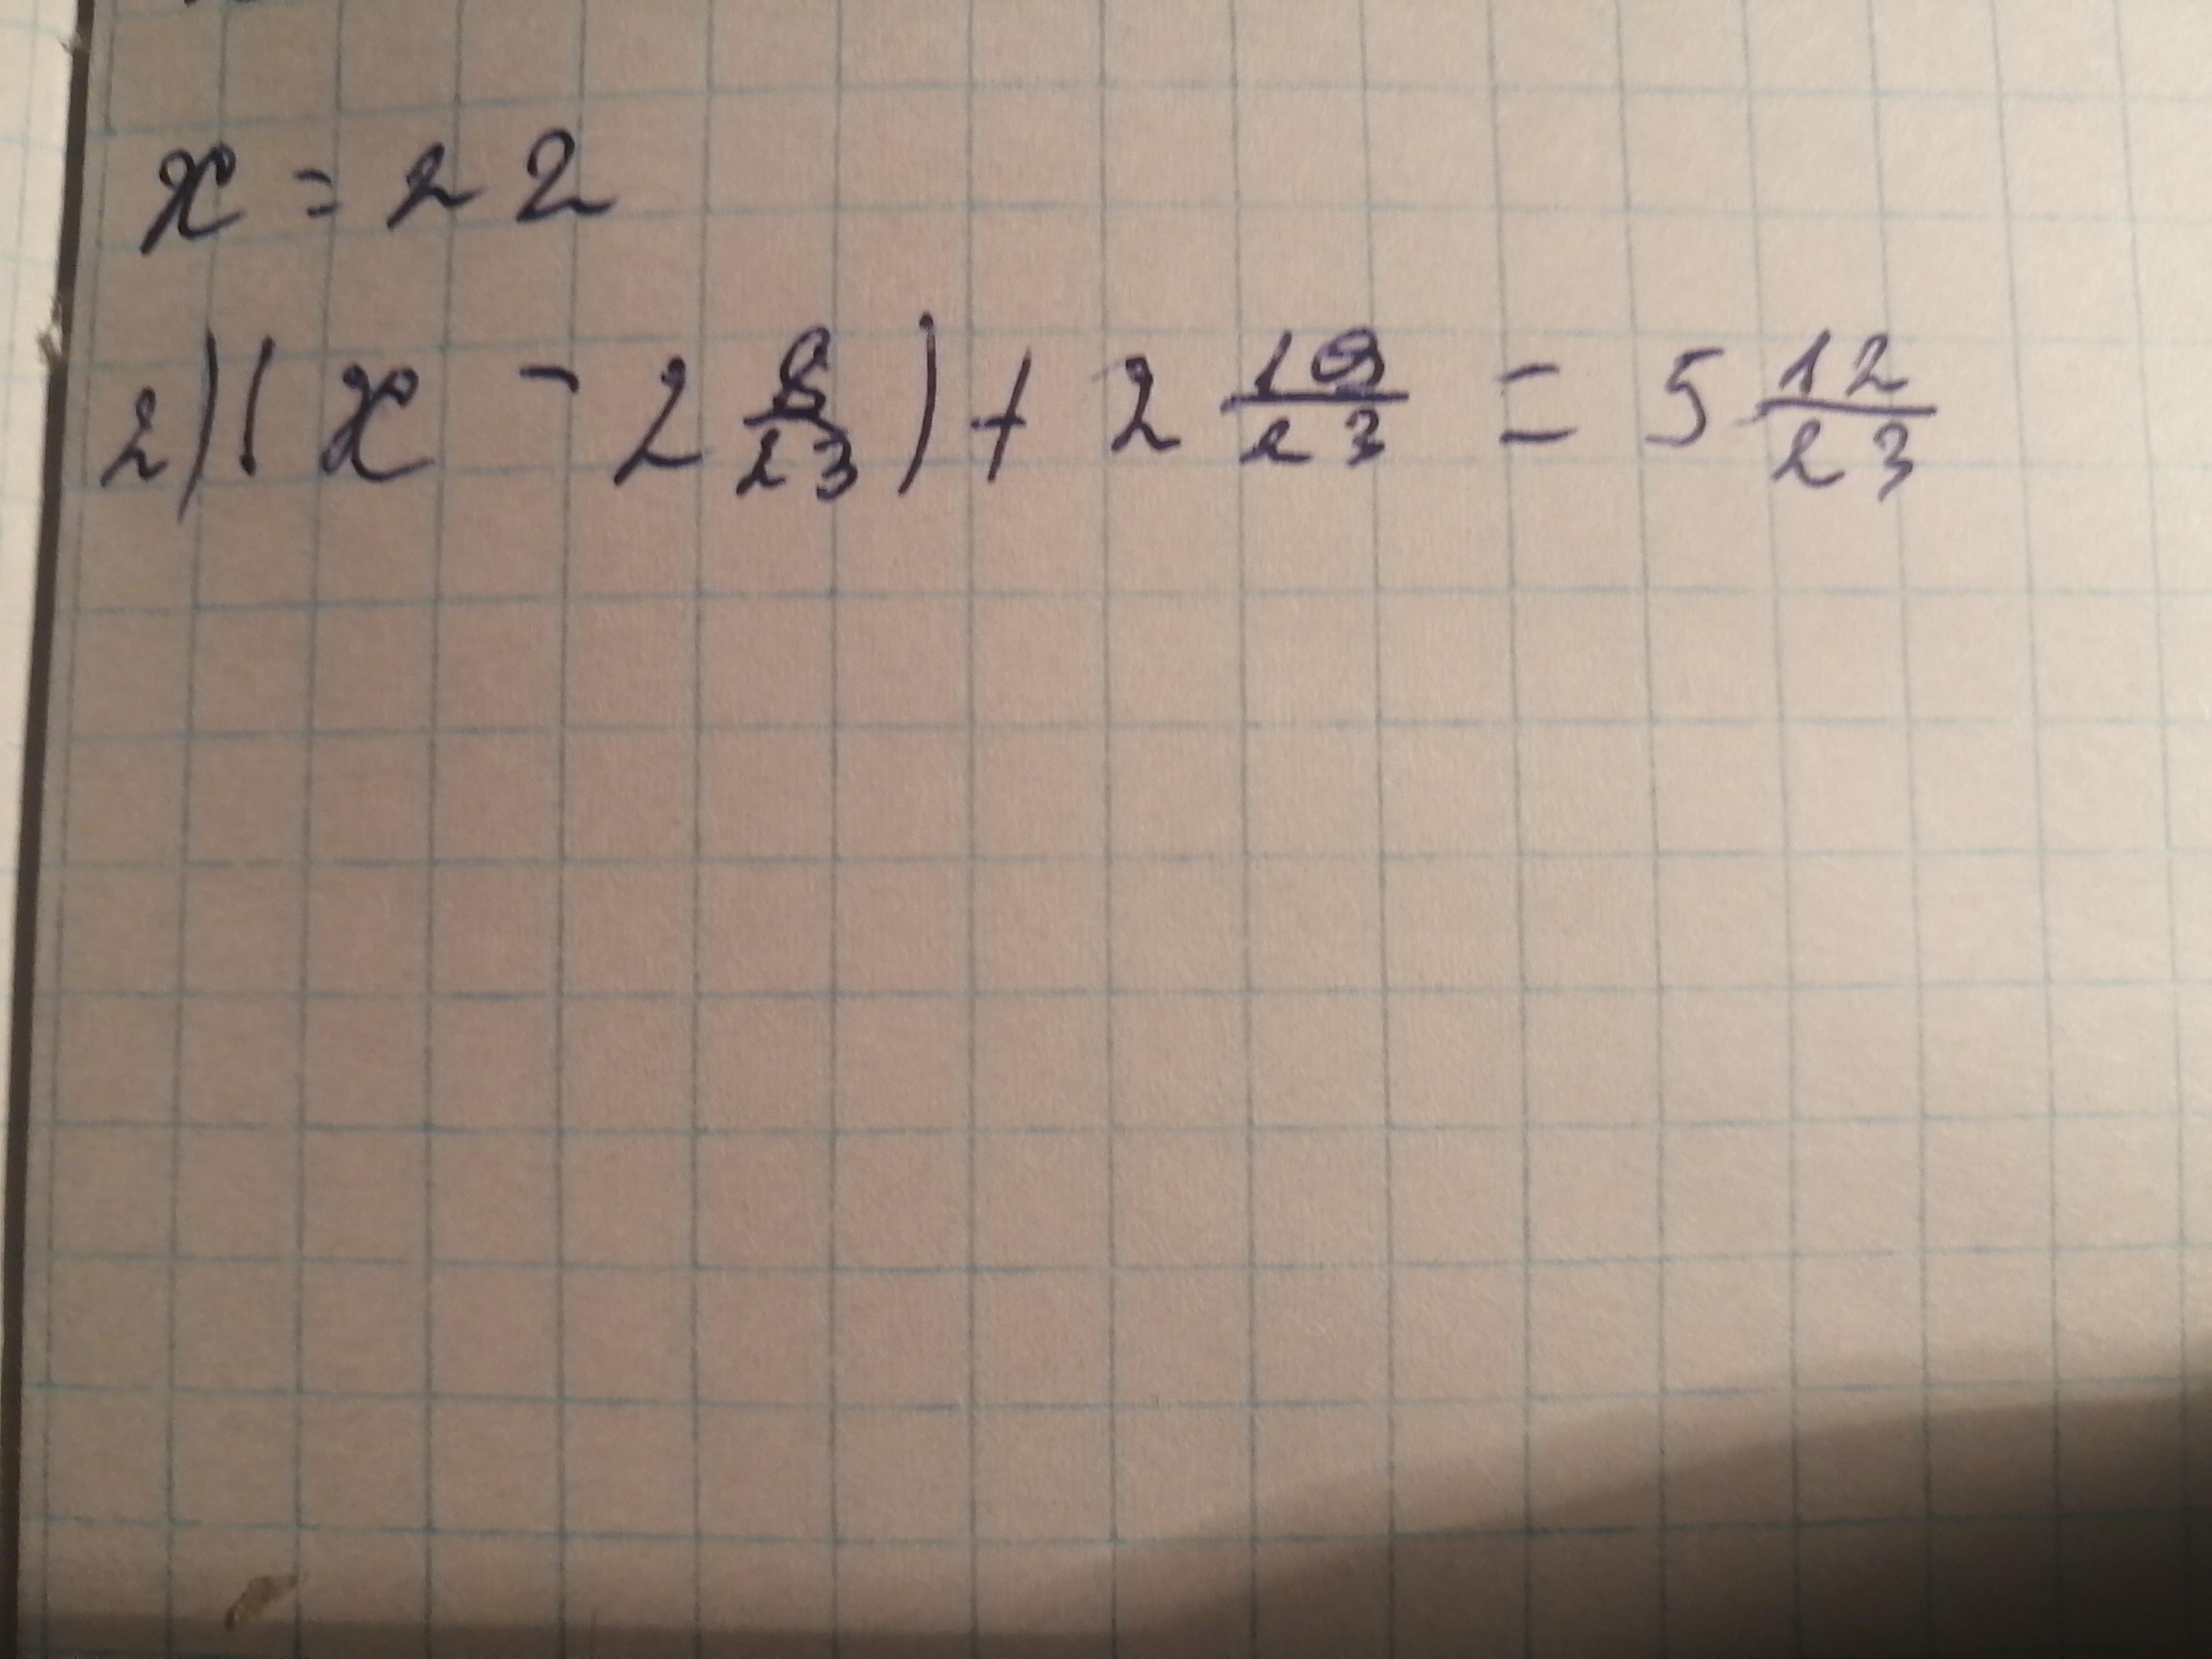 x = 22
2) (x - 2 8/23) + 2 19/23 = 5 12/23